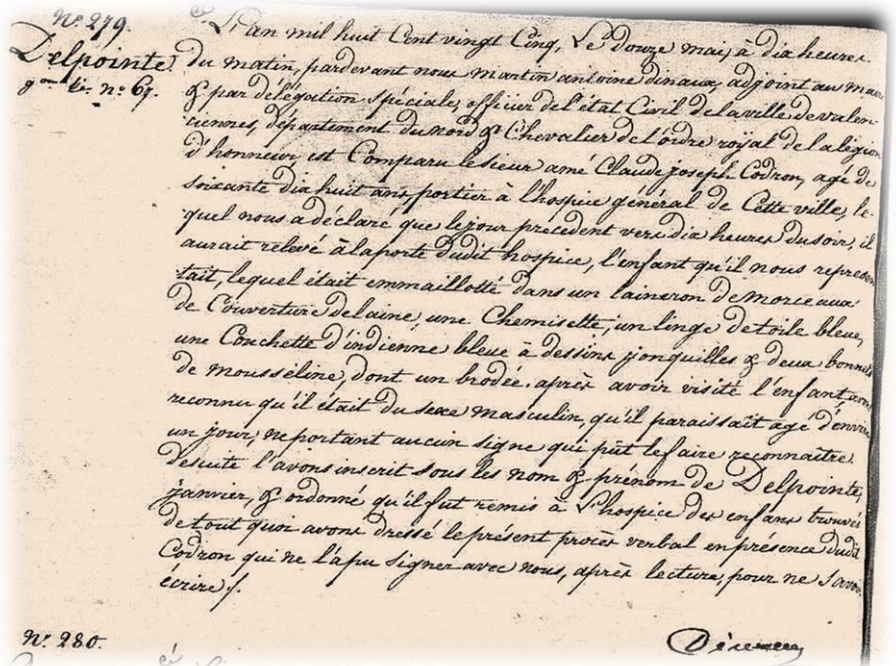 N.° 279.
Delpointe
L'an mil huit Cent vingt Cinq, Le douze mai, à dix heures
du matin, pardevant nous martin antoine dinaux, adjoint au maire
& par délégation spéciale, officier de l'état Civil de la ville de valen-
ciennes, département du nord & Chevalier de l'ordre royal de la légion
d'honneur, est Comparu le sieur amé Claude joseph Codron, agé de
soixante dix huit ans, portier à l'hospice général de Cette ville, le-
quel nous a déclaré que le jour précédent vers dix heures du soir, il
aurait relevé à la porte dudit hospice, l'enfant qu'il nous représen
tait, lequel était emmaillotté dans un laineron de morceaux
de Couverture de laine, une Chemisette, un linge de toile bleue,
une Couchette d'indienne bleue à dessins jonquilles & deux bonnets
de mousseline, dont un brodée. après avoir visité l'enfant, avons
reconnu qu'il était du sexe masculin, qu'il paraissait agé d'environ
un jour, ne portant aucun signe qui pût le faire reconnaître.
desuite l'avons inscrit sous les nom & prénom de Delpointe,
janvier, & ordonné qu'il fut remis à L'hospice des enfans trouvés
de tout quoi avons dressé le présent procès verbal en présence dudit
Codron qui ne l'a pu signer avec nous, après lecture, pour ne savoir
écrire /.
N.° 280.